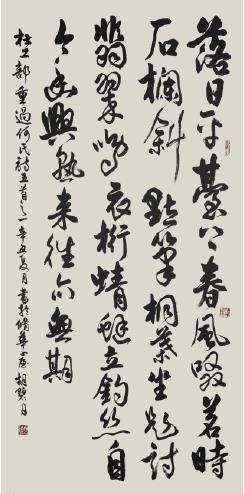 落日平臺上春風啜茗時
石欄斜點筆桐葉坐題詩
翡翠鳴衣桁蜻蜓立釣絲自
今幽興熟來往亦無期
杜工部重過何氏詩五首之一辛丑夏月書於脩華